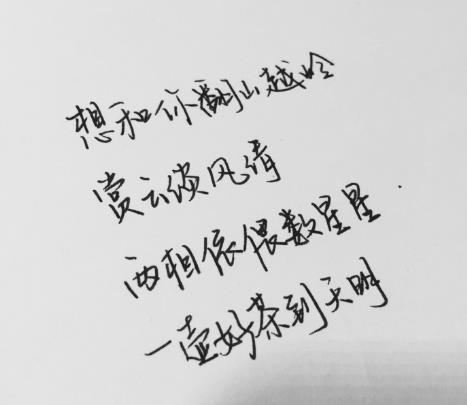 想和你翻山越岭
赏云淡风清
两相依偎数星星.
一壶好茶到天明